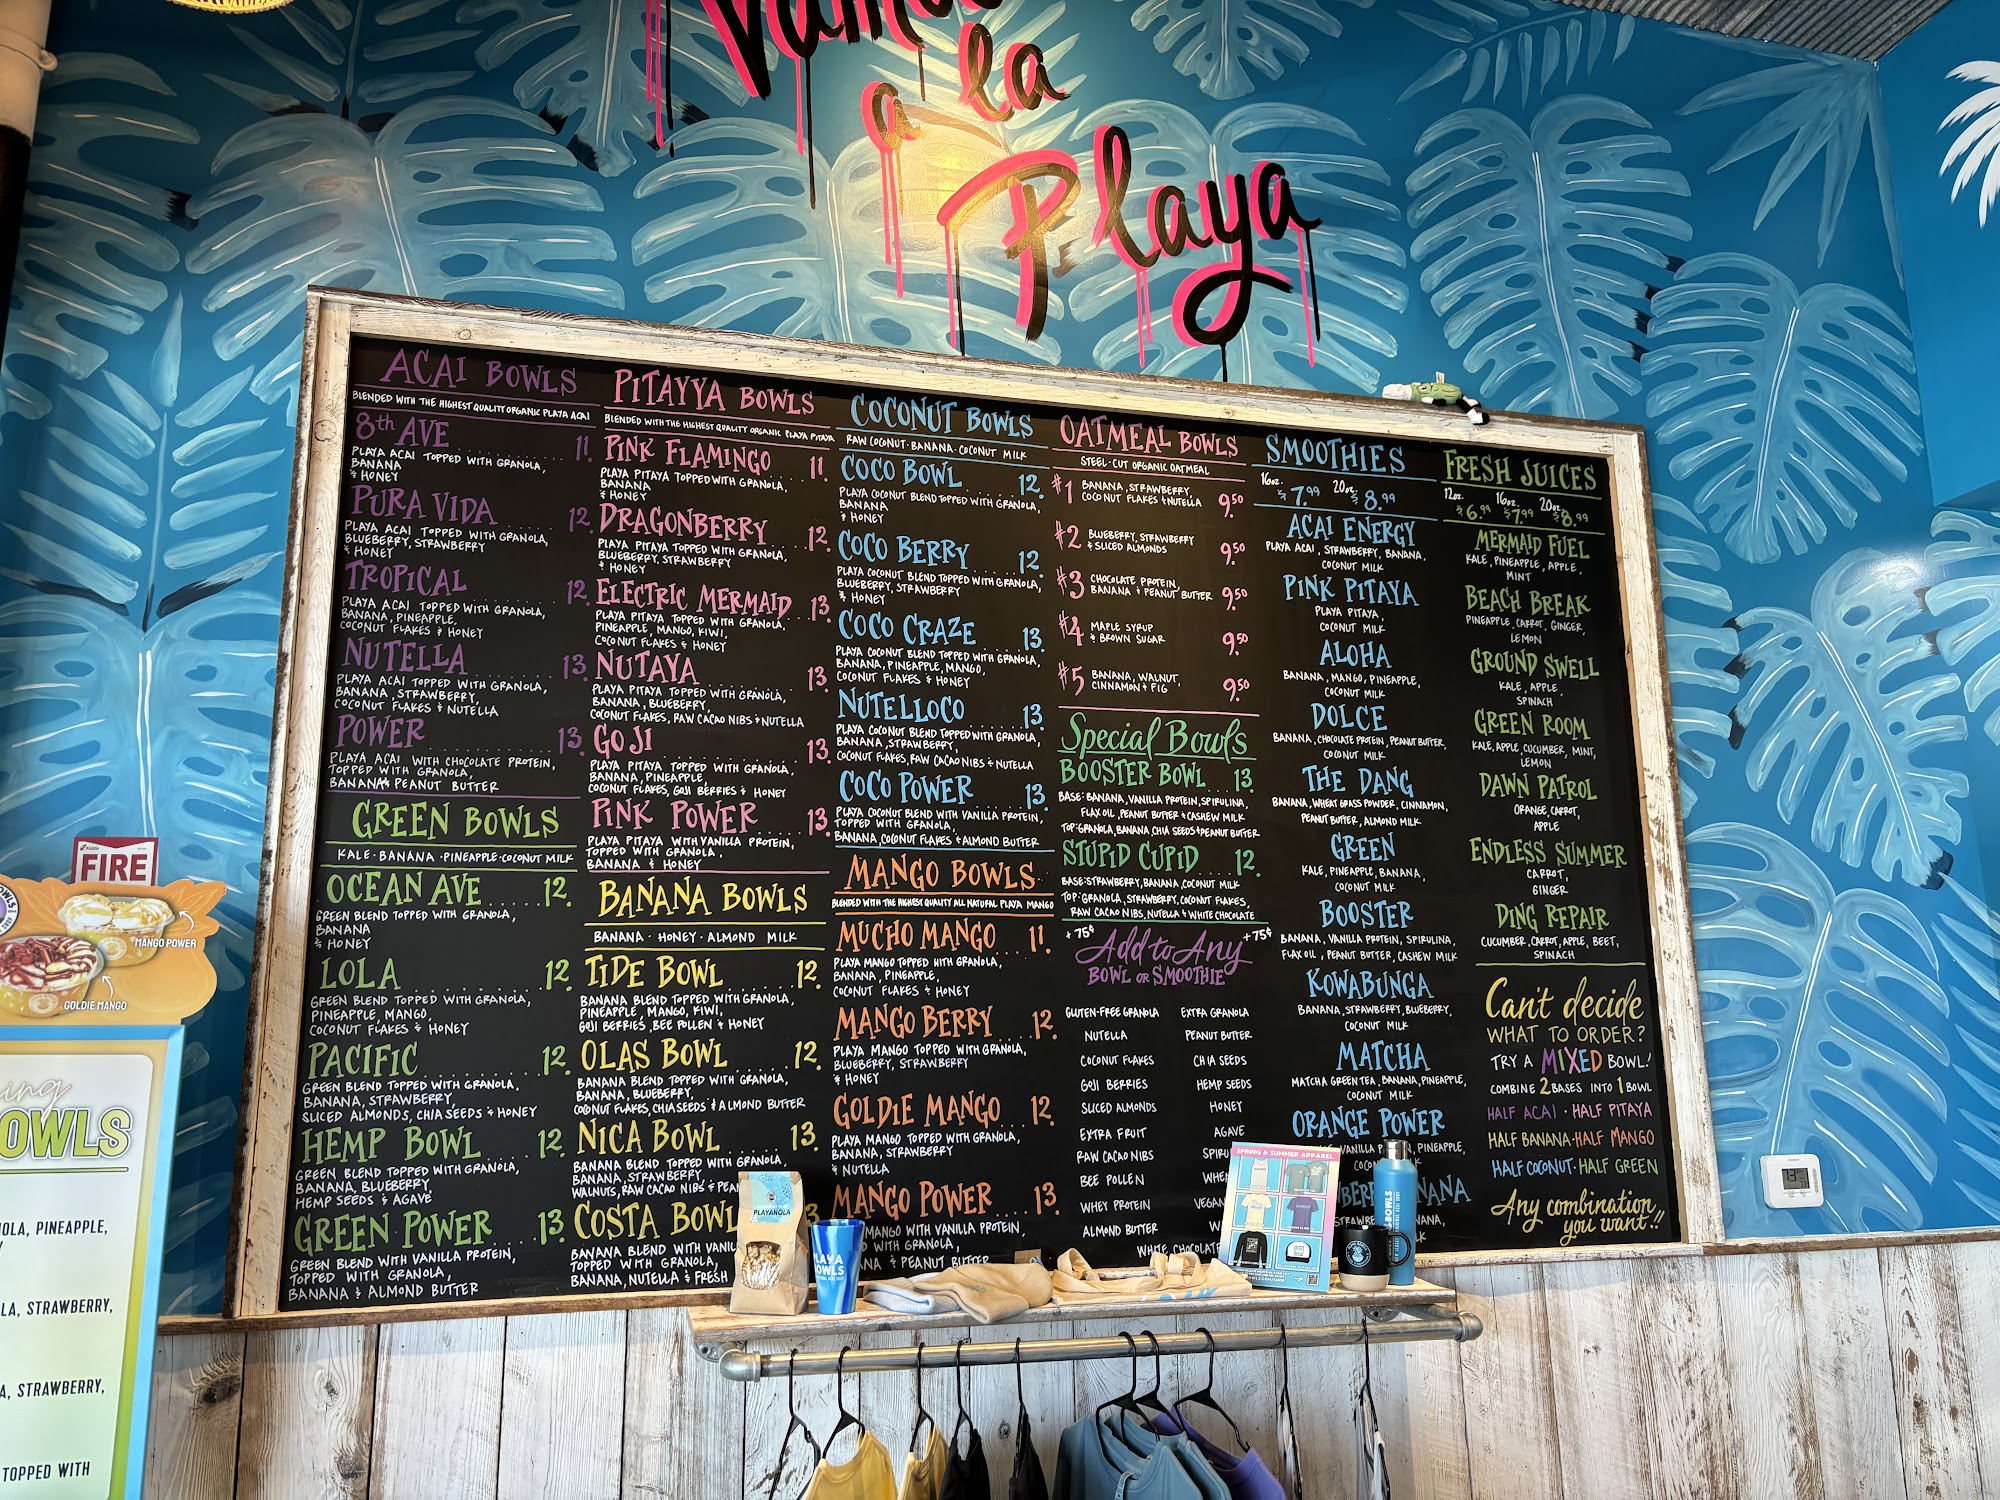 Vamo
a la
Playa
ACAI BOWLS
BLENDED WITH THE HIGHEST QUALITY ORGANIC PLAYA ACAI
8th AVE 11.
PLAYA ACAI TOPPED WITH GRANOLA,
BANANA
& HONEY
PURA VIDA 12.
PLAYA ACAI TOPPED WITH GRANOLA,
BLUEBERRY, STRAWBERRY
& HONEY
TROPICAL 12.
PLAYA ACAI TOPPED WITH GRANOLA,
BANANA, PINEAPPLE,
COCONUT FLAKES & HONEY
NUTELLA 13.
PLAYA ACAI TOPPED WITH GRANOLA,
BANANA, STRAWBERRY,
COCONUT FLAKES & NUTELLA
POWER 13.
PLAYA ACAI WITH CHOCOLATE PROTEIN,
TOPPED WITH GRANOLA,
BANANA & PEANUT BUTTER
GREEN BOWLS
KALE · BANANA · PINEAPPLE · COCONUT MILK
OCEAN AVE 12.
GREEN BLEND TOPPED WITH GRANOLA,
BANANA
& HONEY
LOLA 12.
GREEN BLEND TOPPED WITH GRANOLA,
PINEAPPLE, MANGO,
COCONUT FLAKES & HONEY
PACIFIC 12.
GREEN BLEND TOPPED WITH GRANOLA,
BANANA, STRAWBERRY,
SLICED ALMONDS, CHIA SEEDS & HONEY
HEMP BOWL 12.
GREEN BLEND TOPPED WITH GRANOLA,
BANANA, BLUEBERRY,
HEMP SEEDS & AGAVE
GREEN POWER 13.
GREEN BLEND WITH VANILLA PROTEIN,
TOPPED WITH GRANOLA,
BANANA & ALMOND BUTTER
PITAYYA BOWLS
BLENDED WITH THE HIGHEST QUALITY ORGANIC PLAYA PITAYA
PINK FLAMINGO 11.
PLAYA PITAYA TOPPED WITH GRANOLA,
BANANA
& HONEY
DRAGONBERRY 12.
PLAYA PITAYA TOPPED WITH GRANOLA,
BLUEBERRY, STRAWBERRY
& HONEY
ELECTRIC MERMAID 13.
PLAYA PITAYA TOPPED WITH GRANOLA,
PINEAPPLE, MANGO, KIWI,
COCONUT FLAKES & HONEY
NUTAYA 13.
PLAYA PITAYA TOPPED WITH GRANOLA,
BANANA, BLUEBERRY,
COCONUT FLAKES, RAW CACAO NIBS & NUTELLA
GOJI 13.
PLAYA PITAYA TOPPED WITH GRANOLA,
BANANA, PINEAPPLE,
COCONUT FLAKES, GOJI BERRIES & HONEY
PINK POWER 13.
PLAYA PITAYA WITH VANILLA PROTEIN,
TOPPED WITH GRANOLA,
BANANA & HONEY
BANANA BOWLS
BANANA · HONEY · ALMOND MILK
TIDE BOWL 12.
BANANA BLEND TOPPED WITH GRANOLA,
PINEAPPLE, MANGO, KIWI,
GOJI BERRIES, BEE POLLEN & HONEY
OLAS BOWL 12.
BANANA BLEND TOPPED WITH GRANOLA,
BANANA, BLUEBERRY,
COCONUT FLAKES, CHIA SEEDS & ALMOND BUTTER
NICA BOWL 13.
BANANA BLEND TOPPED WITH GRANOLA,
BANANA, STRAWBERRY,
WALNUTS, RAW CACAO NIBS & PEAN
COSTA BOWL
BANANA BLEND WITH VANIL
TOPPED WITH GRANOLA,
BANANA, NUTELLA & FRESH
COCONUT BOWLS
RAW COCONUT · BANANA · COCONUT MILK
COCO BOWL 12.
PLAYA COCONUT BLEND TOPPED WITH GRANOLA,
BANANA
& HONEY
COCO BERRY 12.
PLAYA COCONUT BLEND TOPPED WITH GRANOLA,
BLUEBERRY, STRAWBERRY
& HONEY
COCO CRAZE 13.
PLAYA COCONUT BLEND TOPPED WITH GRANOLA,
BANANA, PINEAPPLE, MANGO,
COCONUT FLAKES & HONEY
NUTELLOCO 13.
PLAYA COCONUT BLEND TOPPED WITH GRANOLA,
BANANA, STRAWBERRY,
COCONUT FLAKES, RAW CACAO NIBS & NUTELLA
COCO POWER 13.
PLAYA COCONUT BLEND WITH VANILLA PROTEIN,
TOPPED WITH GRANOLA,
BANANA, COCONUT FLAKES & ALMOND BUTTER
MANGO BOWLS
BLENDED WITH THE HIGHEST QUALITY ALL NATURAL PLAYA MANGO
MUCHO MANGO 11.
PLAYA MANGO TOPPED WITH GRANOLA,
BANANA, PINEAPPLE,
COCONUT FLAKES & HONEY
MANGO BERRY 12.
PLAYA MANGO TOPPED WITH GRANOLA,
BLUEBERRY, STRAWBERRY
& HONEY
GOLDIE MANGO 12.
PLAYA MANGO TOPPED WITH GRANOLA,
BANANA, STRAWBERRY
& NUTELLA
MANGO POWER 13.
MANGO WITH VANILLA PROTEIN,
D WITH GRANOLA,
NA & PEANUT BUTTER
OATMEAL BOWLS
STEEL-CUT ORGANIC OATMEAL
#1 BANANA, STRAWBERRY, 9.50
COCONUT FLAKES & NUTELLA
#2 BLUEBERRY, STRAWBERRY 9.50
& SLICED ALMONDS
#3 CHOCOLATE PROTEIN, 9.50
BANANA & PEANUT BUTTER
#4 MAPLE SYRUP 9.50
& BROWN SUGAR
#5 BANANA, WALNUT, 9.50
CINNAMON & FIG
Special Bowls
BOOSTER BOWL 13.
BASE: BANANA, VANILLA PROTEIN, SPIRULINA,
FLAX OIL, PEANUT BUTTER & CASHEW MILK
TOP: GRANOLA, BANANA, CHIA SEEDS & PEANUT BUTTER
STUPID CUPID 12.
BASE: STRAWBERRY, BANANA, COCONUT MILK
TOP: GRANOLA, STRAWBERRY, COCONUT FLAKES,
RAW CACAO NIBS, NUTELLA & WHITE CHOCOLATE
+75¢ Add to Any +75¢
BOWL OR SMOOTHIE
GLUTEN-FREE GRANOLA EXTRA GRANOLA
NUTELLA PEANUT BUTTER
COCONUT FLAKES CHIA SEEDS
GOJI BERRIES HEMP SEEDS
SLICED ALMONDS HONEY
EXTRA FRUIT AGAVE
RAW CACAO NIBS SPIRU
BEE POLLEN WHEA
WHEY PROTEIN VEGAN
ALMOND BUTTER W
WHITE CHOCOLATE
SMOOTHIES
16oz. $7.99 20oz. $8.99
ACAI ENERGY
PLAYA ACAI, STRAWBERRY, BANANA,
COCONUT MILK
PINK PITAYA
PLAYA PITAYA,
COCONUT MILK
ALOHA
BANANA, MANGO, PINEAPPLE,
COCONUT MILK
DOLCE
BANANA, CHOCOLATE PROTEIN, PEANUT BUTTER,
COCONUT MILK
THE DANG
BANANA, WHEAT GRASS POWDER, CINNAMON,
PEANUT BUTTER, ALMOND MILK
GREEN
KALE, PINEAPPLE, BANANA,
COCONUT MILK
BOOSTER
BANANA, VANILLA PROTEIN, SPIRULINA,
FLAX OIL, PEANUT BUTTER, CASHEW MILK
KOWABUNGA
BANANA, STRAWBERRY, BLUEBERRY,
COCONUT MILK
MATCHA
MATCHA GREEN TEA, BANANA, PINEAPPLE,
COCONUT MILK
ORANGE POWER
VANILLA P S, PINEAPPLE,
COCO
BERR NANA
STRAWBE NANA,
LK
FRESH JUICES
12oz. $6.99 16oz. $7.99 20oz. $8.99
MERMAID FUEL
KALE, PINEAPPLE, APPLE,
MINT
BEACH BREAK
PINEAPPLE, CARROT, GINGER,
LEMON
GROUND SWELL
KALE, APPLE
SPINACH
GREEN ROOM
KALE, APPLE, CUCUMBER, MINT,
LEMON
DAWN PATROL
ORANGE, CARROT,
APPLE
ENDLESS SUMMER
CARROT,
GINGER
DING REPAIR
CUCUMBER, CARROT, APPLE, BEET,
SPINACH
Can't decide
WHAT TO ORDER?
TRY A MIXED BOWL!
COMBINE 2 BASES INTO 1 BOWL
HALF ACAI · HALF PITAYA
HALF BANANA · HALF MANGO
HALF COCONUT · HALF GREEN
Any combination
you want!!
FIRE
MANGO POWER
GOLDIE MANGO
ing
OWLS
NOLA, PINEAPPLE,
LA, STRAWBERRY,
A, STRAWBERRY,
TOPPED WITH
PLAYANOLA
PLAYA
BOWLS
SPRING & SUMMER APPAREL
BOWLS